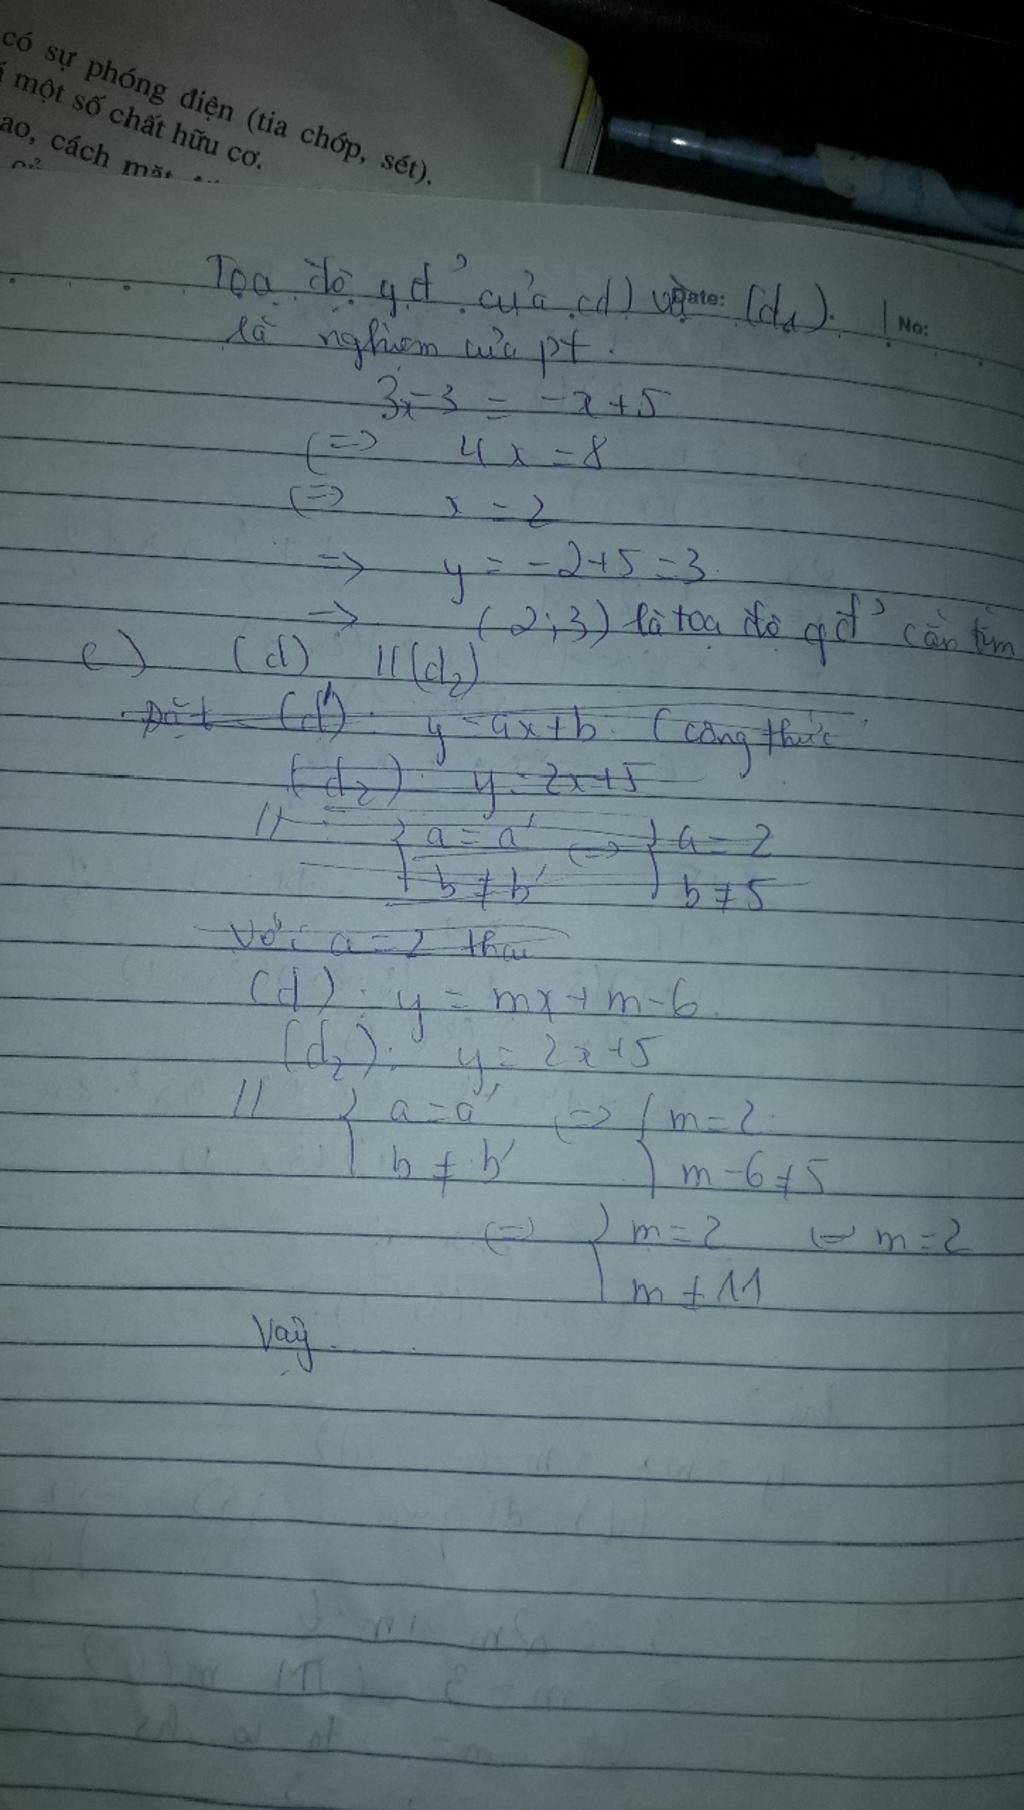 có sự phóng điện (tia chớp, sét).
một số chất hữu cơ.
ao, cách mặt
Tọa độ gđ' của (d) và Date: (d1). No:
là nghiệm của pt.
3x-3 = -x+5
(=> 4x = 8
(=> x = 2
=> y = -2+5 = 3
=> (2;3) là tọa độ gđ' cần tìm
c) (d) // (d2)
Đặt (d'): y = ax+b (công thức
(d2): y = 2x+5
// { a = a' (=> { a = 2
b ≠ b' b ≠ 5
Với a = 2 thay
(d): y = mx + m-6.
(d2): y = 2x+5
// { a = a' (=> { m = 2
b ≠ b' m-6 ≠ 5
(=> { m = 2 (=> m = 2
m ≠ 11
Vậy .......